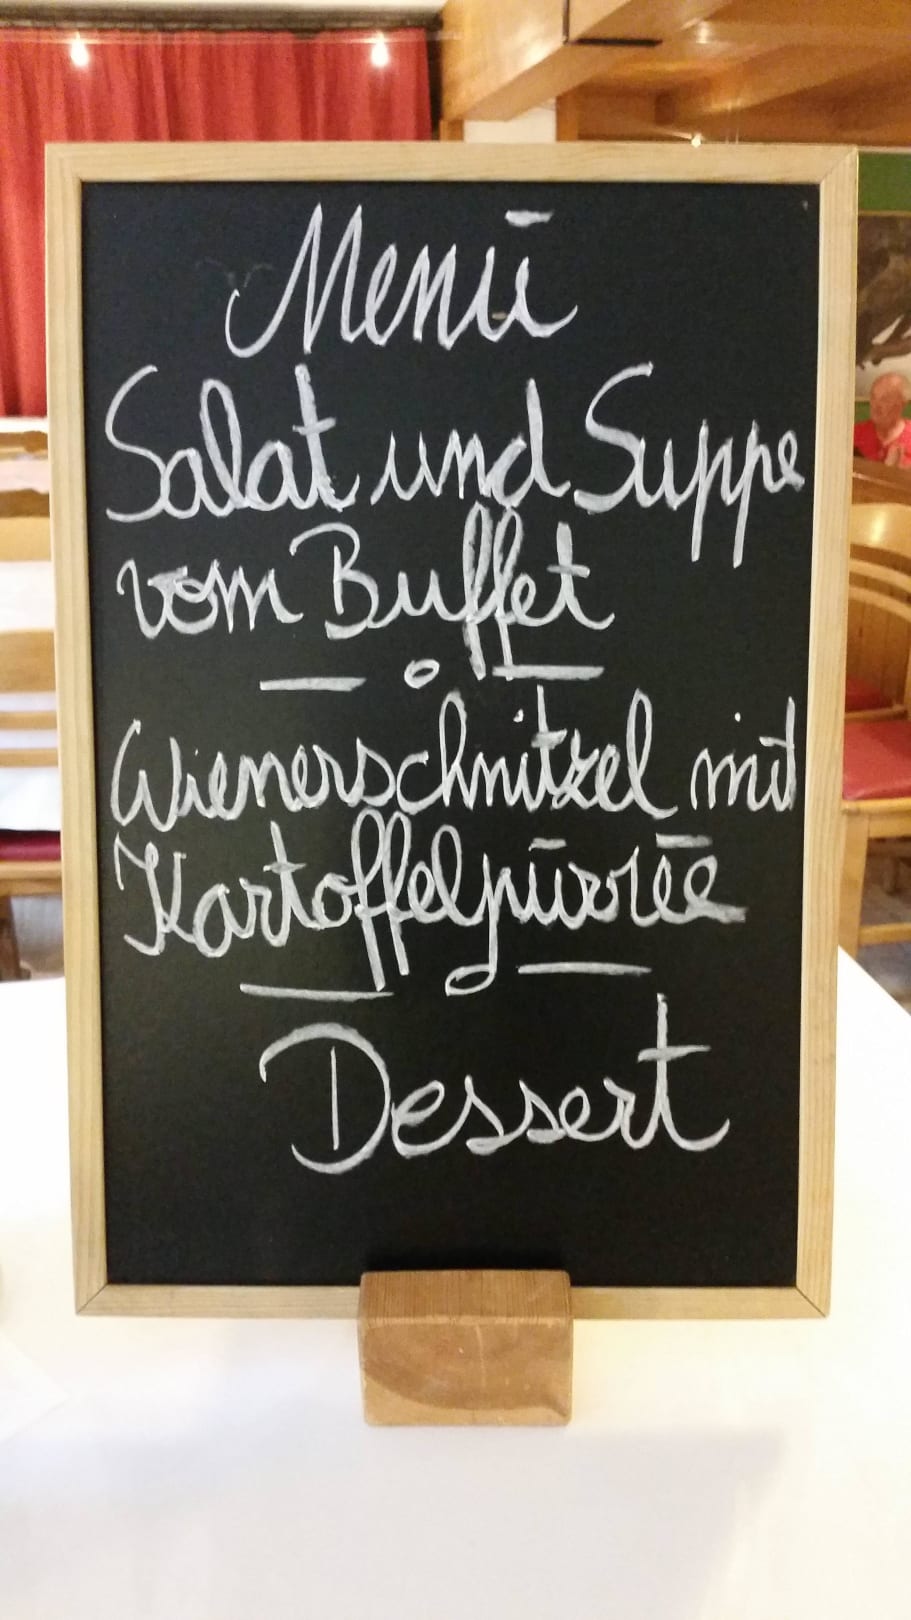 Menü
Salat und Suppe
vom Buffet
— o —
Wienerschnitzel mit
Kartoffelpürrée
Dessert